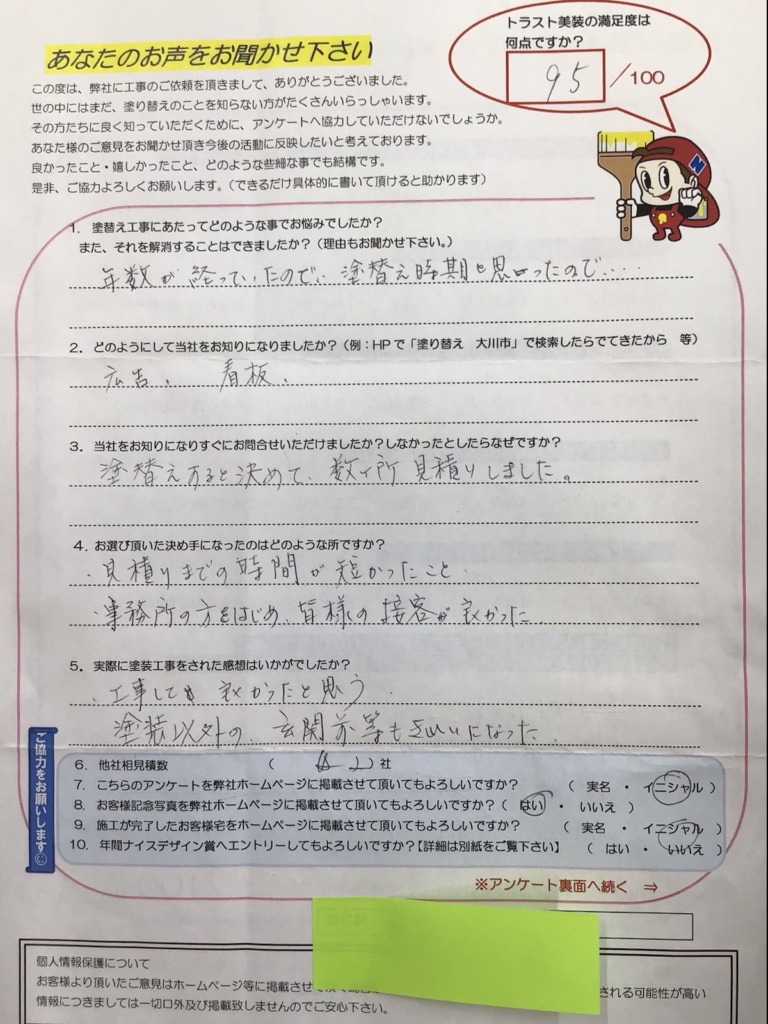 あなたのお声をお聞かせ下さい
トラスト美装の満足度は
何点ですか？
95／100
この度は、弊社に工事のご依頼を頂きまして、ありがとうございました。
世の中にはまだ、塗り替えのことを知らない方がたくさんいらっしゃいます。
その方たちに良く知っていただくために、アンケートへ協力していただけないでしょうか。
あなた様のご意見をお聞かせ頂き今後の活動に反映したいと考えております。
良かったこと・嬉しかったこと、どのような些細な事でも結構です。
是非、ご協力よろしくお願いします。（できるだけ具体的に書いて頂けると助かります）
N
1．塗替え工事にあたってどのような事でお悩みでしたか？
また、それを解消することはできましたか？（理由もお聞かせ下さい。）
年数が経っていたので、塗替え時期と思ったので....
2．どのようにして当社をお知りになりましたか？（例：HPで「塗り替え　大川市」で検索したらでてきたから　等）
広告、　看板、
3．当社をお知りになりすぐにお問合せいただけましたか？しなかったとしたらなぜですか？
塗替えすると決めて、数ヶ所見積りしました。
4．お選び頂いた決め手になったのはどのような所ですか？
・見積りまでの時間が短かったこと
・事務所の方をはじめ、皆様の接客が良かった
5．実際に塗装工事をされた感想はいかがでしたか？
・工事しても良かったと思う
塗装以外の、玄関前等もきれいになった
ご協力をお願いします
6．他社相見積数　（　2　）社
7．こちらのアンケートを弊社ホームページに掲載させて頂いてもよろしいですか？　（　実名　・　イニシャル　）
8．お客様記念写真を弊社ホームページに掲載させて頂いてもよろしいですか？（　はい　・　いいえ　）
9．施工が完了したお客様宅をホームページに掲載させて頂いてもよろしいですか？　（　実名　・　イニシャル　）
10．年間ナイスデザイン賞へエントリーしてもよろしいですか？【詳細は別紙をご覧下さい】　（　はい　・　いいえ　）
※アンケート裏面へ続く　⇒
個人情報保護について
お客様より頂いたご意見はホームページ等に掲載させて　される可能性が高い
情報につきましては一切口外及び掲載致しませんのでご安心下さい。